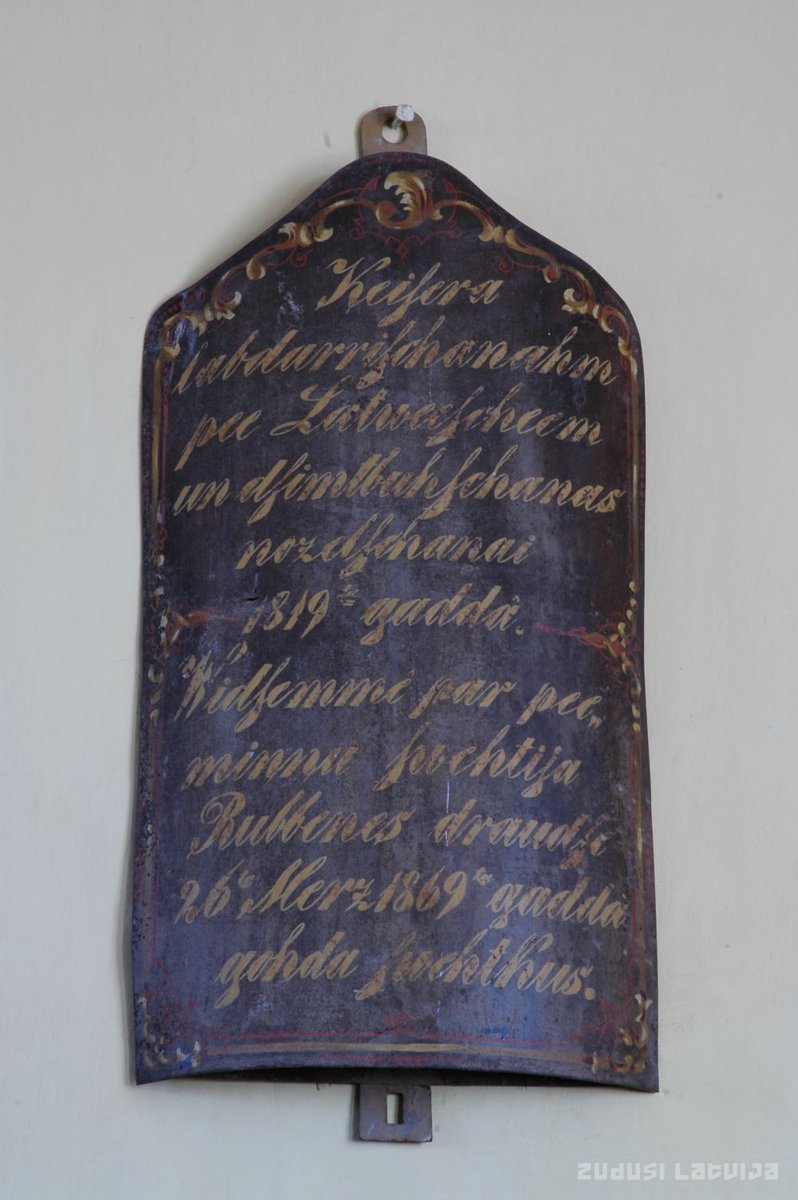 Keisera
labdarrischanahm
pee Latweescheem
un dsimtbuhschanas
nozelschanai
1819ta gaddâ.
Widsemmê par pee„
minnu swehtija
Rubbenes draudse
26tâ Merz 1869ta gaddâ
gohda swehtkus.
ZUDUSI LATVIJA